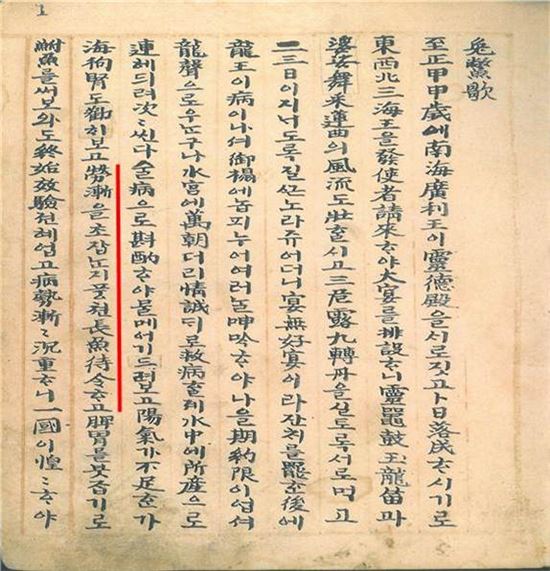 1
兔鱉歌
至正甲申歲에南海廣利王이靈德殿을시로짓고卜日落成ᄒᆞ시기로
東西北三海王을發使者請來ᄒᆞ야大宴를排設ᄒᆞ니靈鼉鼓玉龍笛과
婆娑舞采蓮曲의風流도壯ᄒᆞ시고三危露九轉丹을실도록서로먹고
二三日이지너도록질쓴노라쥬어더니宴無好宴이라잔치를罷ᄒᆞᆫ後에
龍王이病이나셔御榻에놉피누어여러날呻吟ᄒᆞ야나을期約限이업셔
龍聲으로우는구나水宮에萬朝더리情誠디로救病ᄒᆞᆯ제水中에所産으로
連ᄒᆞ여드려次〻씬다술病으로斟酌ᄒᆞ야물메여기드려보고陽氣가不足ᄒᆞᆫ가
海狗腎도勸ᄒᆡ보고勞漸을초잡는지풍천長魚待令ᄒᆞ고脾胃를붓잡기로
鮒魚를써보와도終始效驗전혜업고病勢漸〻沉重ᄒᆞ니一國이惶〻ᄒᆞ야